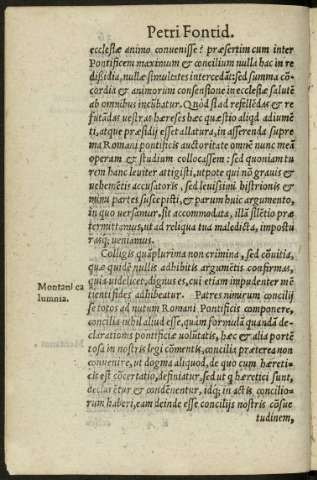 Petri Fontid.
ecclesiæ animo conuenisse? præsertim cum inter
Pontificem maximum & concilium nulla hac in re
dissidia, nullæ simultates intercedāt: sed summa cō-
cordia & animorum consensione in ecclesiæ salutē
ab omnibus incūbatur. Quòd si ad refellēdas & re
futādas vestras hæreses hæc quæstio aliqd adiumē
ti, atque præsidij esset allatura, in asserenda supre
ma Romani pontificis auctoritate omnē nunc meā
operam & studium collocassem: sed quoniam tu
rem hanc leuiter attigisti, utpote qui nō grauis &
uehemētis accusatoris, sed leuissimi histrionis &
mimi partes suscepisti, & parum huic argumento,
in quo uersamur, sit accommodata, illā silētio præ
termittamus, ut ad reliqua tua maledicta, impostu
rasq; ueniamus.
Colligis quāplurima non crimina, sed cōuitia,
quæ quidē nullis adhibitis argumētis confirmas,
quia uidelicet, dignus es, cui etiam impudenter mē
tienti fides adhibeatur. Patres nimirum concilij
Montani ca
lumnia.
se totos ad nutum Romani Pontificis componere,
concilia nihil aliud esse, quàm formulā quandā de
clarationis pontificiæ uolūtatis, hæc & alia portē
tosa in nostris legi cōmentis, concilia præterea non
conuenire, ut dogma aliquod, de quo cum hæreti-
cis est cōcertatio, definiatur, sed ut q hæretici sunt,
declarētur & condēnentur, idq; in actis concilio-
rum haberi, eam deinde esse concilijs nostris cōsue
tudinem,